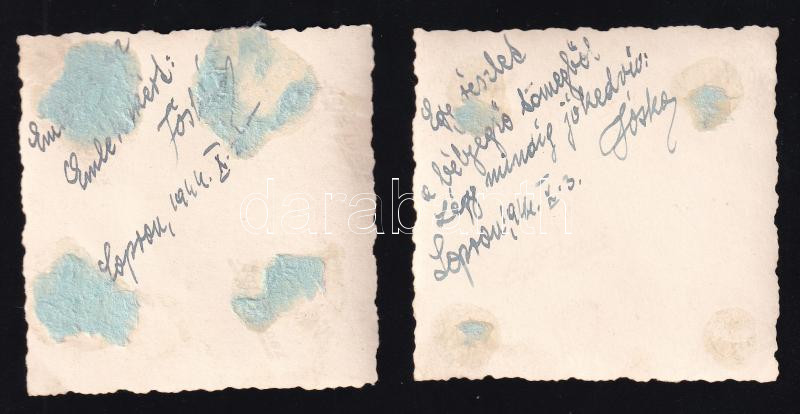 Em
Jóska
Sopron, 1944. X.
Egy részlet
a tömegből
Légy mindig jókedvű:
Jóska
Sopron, 1944. X. 3.
darabanth